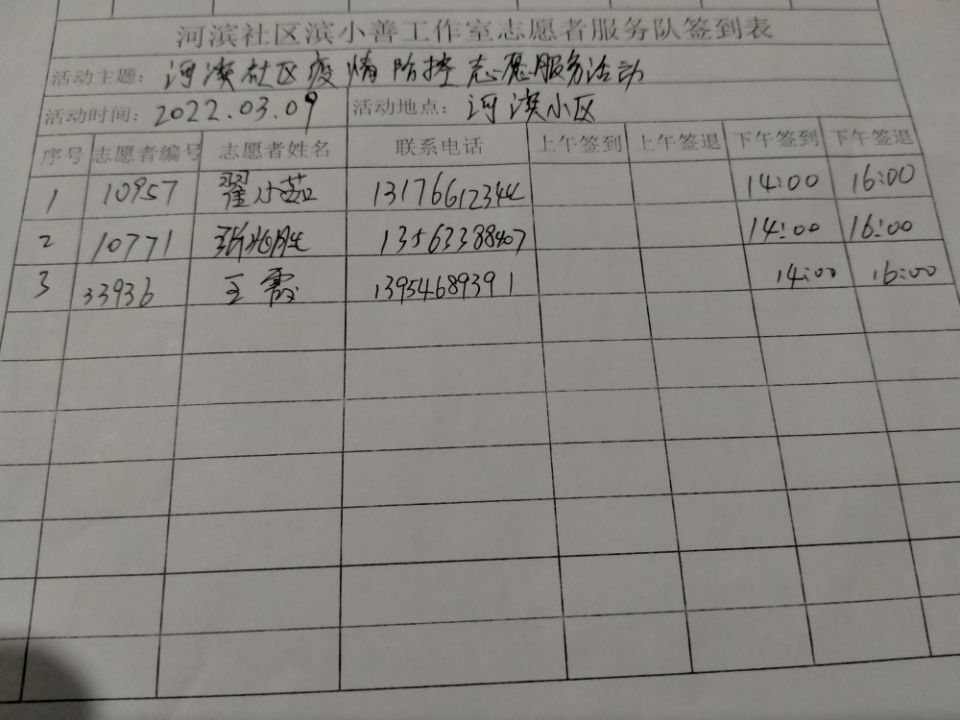 河滨社区滨小善工作室志愿者服务队签到表
活动主题：河滨社区疫情防控志愿服务活动
活动时间：2022.03.09 活动地点：河滨小区
序号 志愿者编号 志愿者姓名 联系电话 上午签到 上午签退 下午签到 下午签退
1 10957 翟小茹 13176612344 14:00 16:00
2 10771 张兆胜 13563388407 14:00 16:00
3 33936 王霞 13954689391 14:00 16:00